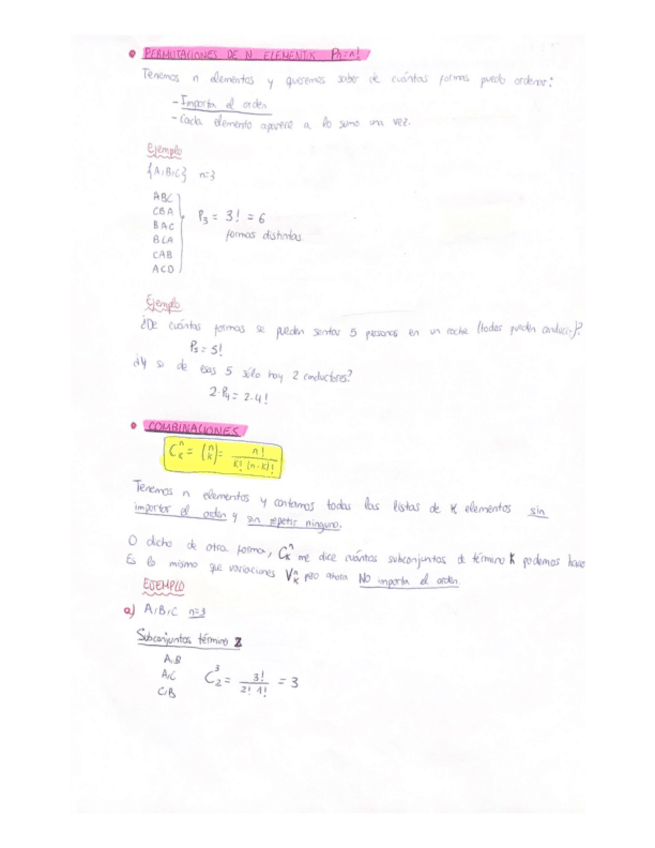 • PERMUTACIONES DE N ELEMENTOS Pn=n!
Tenemos n elementos y queremos saber de cuántas formas puedo ordenar:
- Importa el orden
- Cada elemento aparece a lo sumo una vez.
Ejemplo
{A,B,C} n=3
ABC
CBA
BAC
BCA
CAB
ACD
P₃ = 3! = 6
formas distintas
Ejemplo
¿De cuántas formas se pueden sentar 5 personas en un coche (todos pueden conducir)?
P₅ = 5!
¿Y si de esas 5 sólo hay 2 conductores?
2·P₄ = 2·4!
• COMBINACIONES
Cₖⁿ = (n k) = n! / k! (n-k)!
Tenemos n elementos y contamos todas las listas de K elementos sin
importar el orden y sin repetir ninguno.
O dicho de otra forma, Cₖⁿ me dice cuántos subconjuntos de término K podemos hacer
Es lo mismo que variaciones Vₖⁿ pero ahora NO importa el orden
EJEMPLO
a) A,B,C n=3
Subconjuntos término 2
A,B
A,C
C,B
C₂³ = 3! / 2! 1! = 3